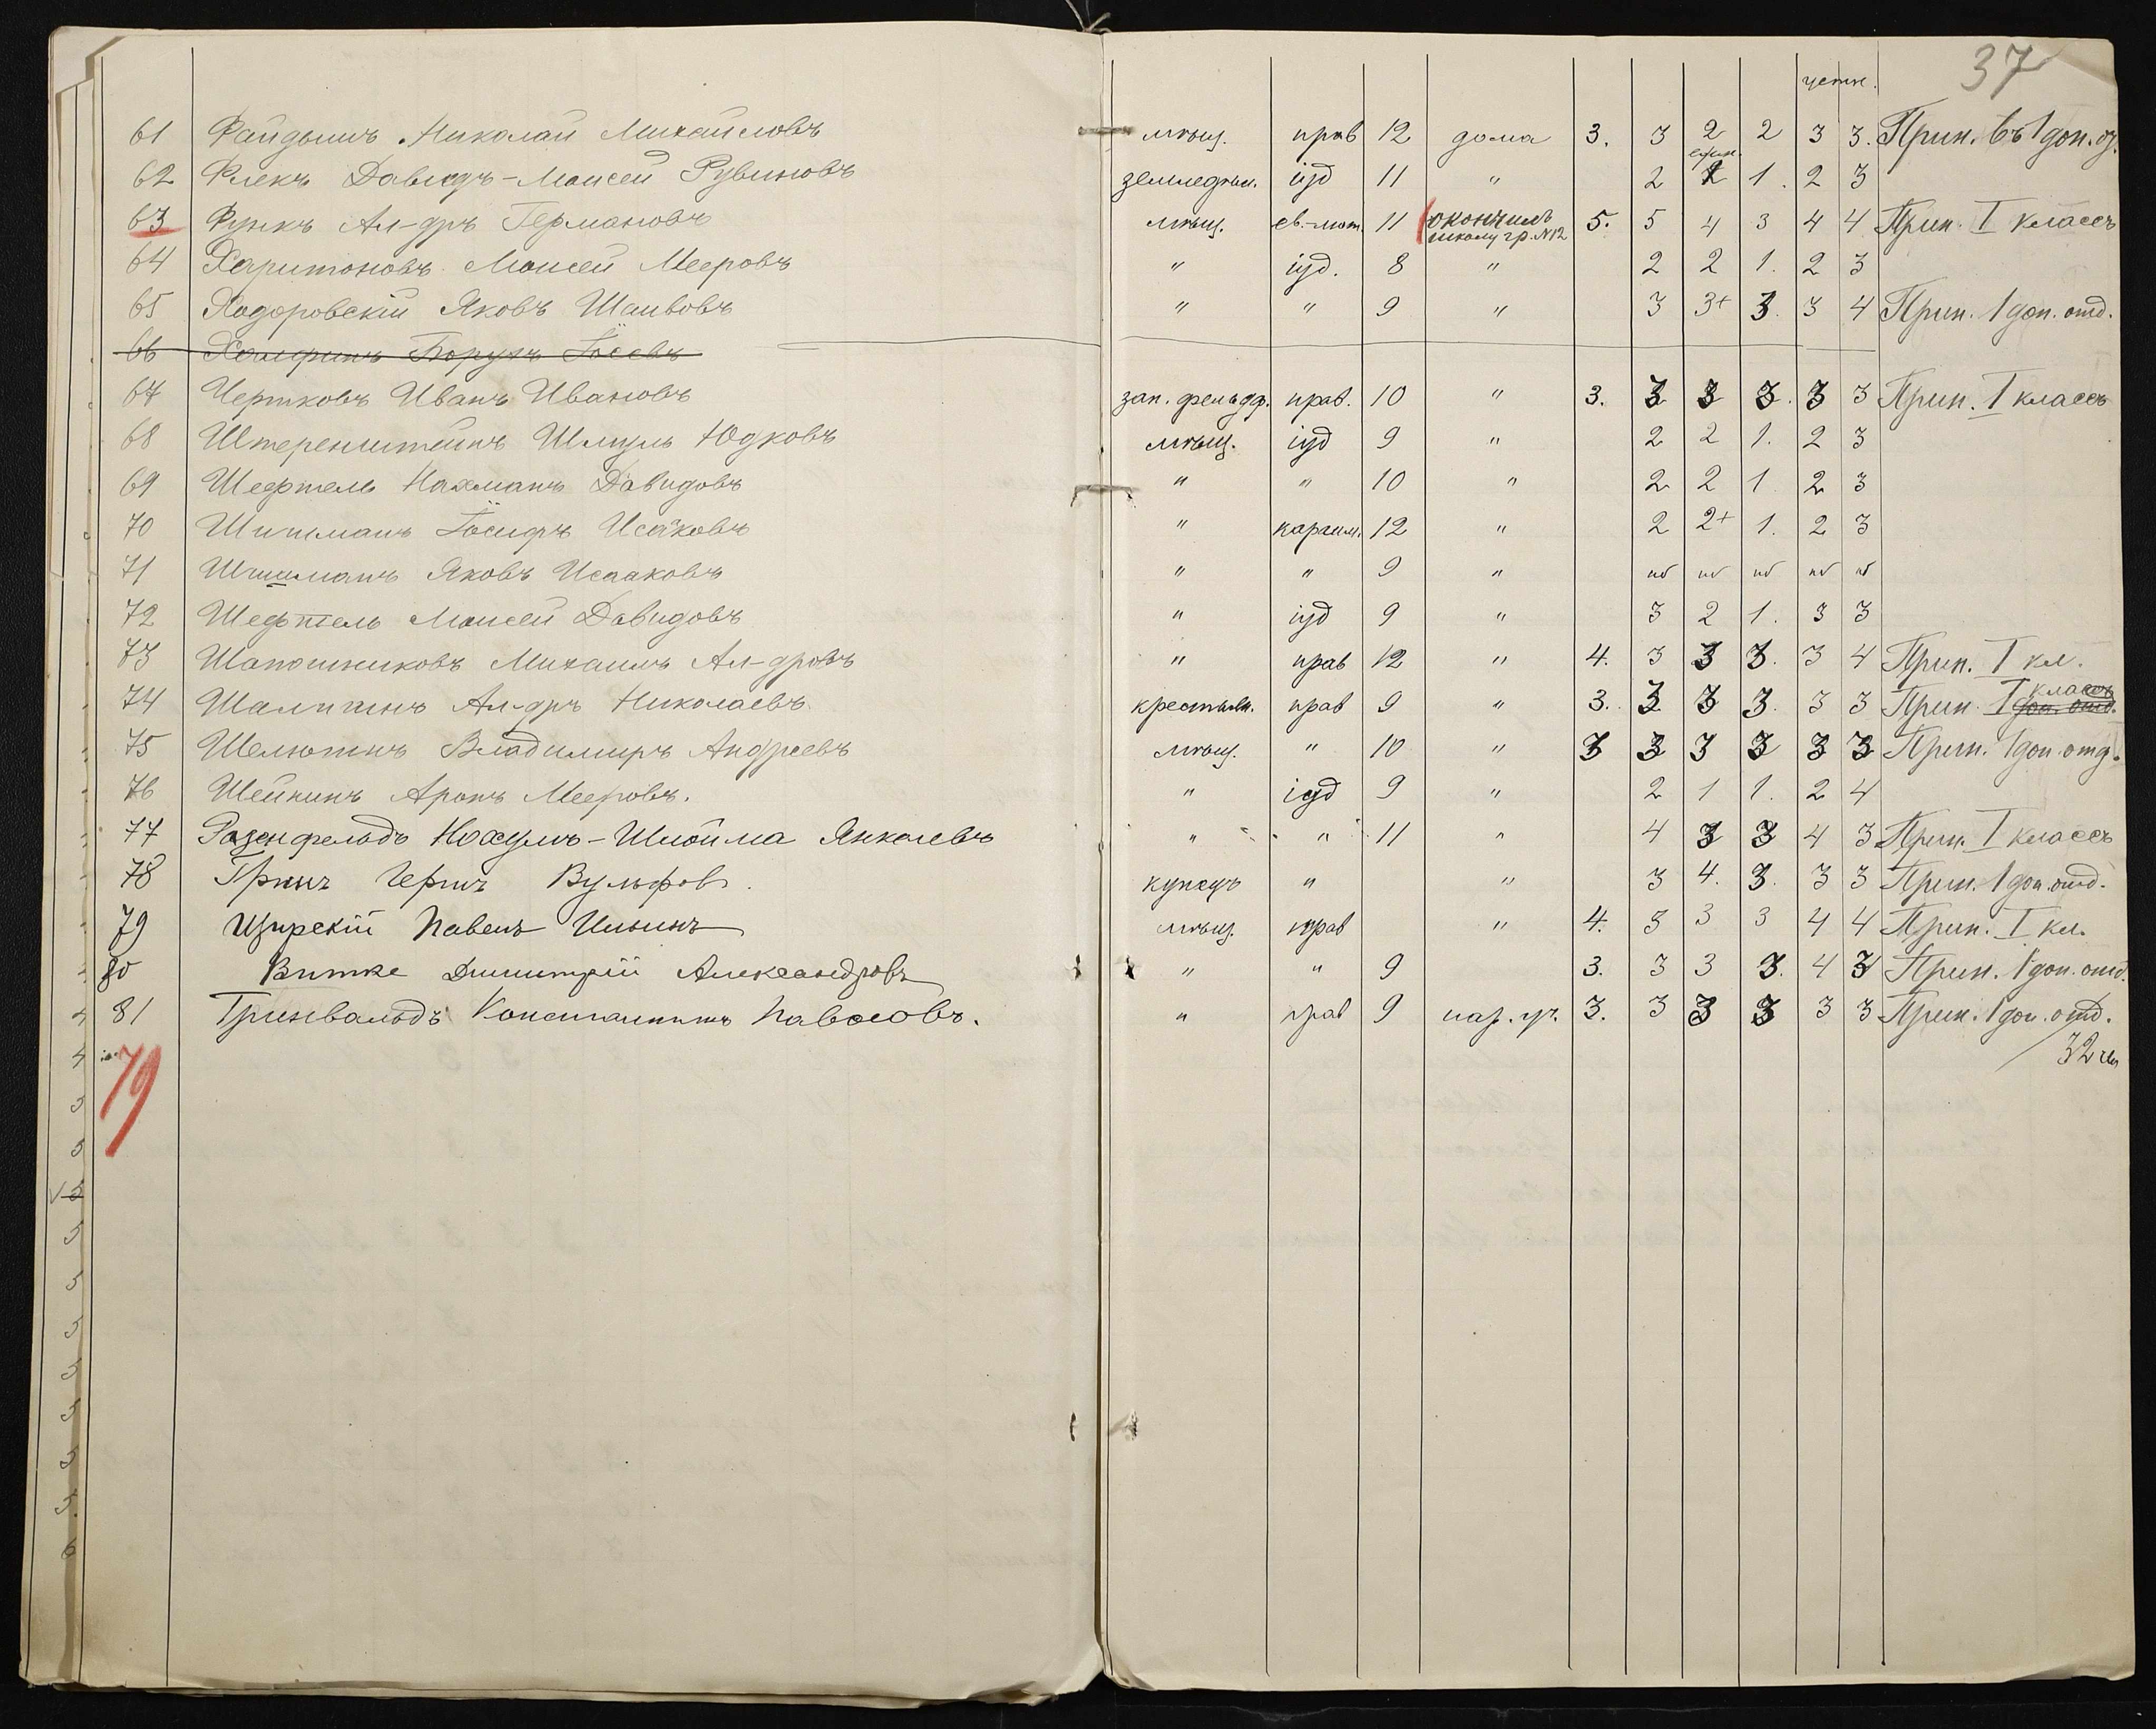 37
устн.
61 Файдышъ Николай Михайловъ мѣщ. прав 12 дома 3. 3 2 2 3 3. Прин. въ 1 доп. о.
62 Флекъ Давидъ-Моисей Рувиновъ земледѣл. іуд 11 " 2 1. 2 3
63 Функъ Ал-дръ Германовъ мѣщ. ев.-лют. 11 окончилъ школу гр. №12 5. 5 4 3 4 4 Прин. I классъ
64 Харитоновъ Моисей Мееровъ " іуд. 8 " 2 2 1. 2 3
65 Ходоровскій Яковъ Шаивовъ " " 9 " 3 3+ 3. 3 4 Прин. 1 доп. отд.
66 Борухъ Іосевъ
67 Чертковъ Иванъ Ивановъ зап. фельдф. прав. 10 " 3. 3 3 3. 3 3 Прин. I классъ
68 Штеренштейнъ Шмуль Юдковъ мѣщ. іуд 9 " 2 2 1. 2 3
69 Шефтель Нахманъ Давидовъ " " 10 " 2 2 1 2 3
70 Шишманъ Іосифъ Исаковъ " караим. 12 " 2 2+ 1. 2 3
71 Шишманъ Яковъ Исааковъ " " 9 " нб нб нб нб нб
72 Шефтель Моисей Давидовъ " іуд 9 " 3 2 1. 3 3
73 Шапошниковъ Михаилъ Ал-дровъ " прав 12 " 4. 3 3 3. 3 4 Прин. I кл.
74 Шалыгинъ Ал-дръ Николаевъ крестьян. прав 9 " 3. 3 3 3. 3 3 Прин. I классъ доп. отд.
75 Шелютинъ Владимиръ Андреевъ мѣщ. " 10 " 3 3 3 3 3 3 Прин. 1 доп. отд.
76 Шейнинъ Аронъ Мееровъ. " іуд 9 " 2 1 1. 2 4
77 Розенфельдъ Нохумъ-Шлойма Янкелевъ " " 11 " 4 3 3 4 3 Прин. I классъ
78 Гринъ Герцъ Вульфов. купецъ " " 3 4. 3. 3 3 Прин. 1 доп. отд.
79 Павелъ Ильинъ мѣщ. прав " 4. 3 3 3 4 4 Прин. I кл.
80 Витке Димитрій Александровъ " " 9 3. 3 3 3. 4 3 Прин. 1 доп. отд.
81 Гринвальдъ Константинъ Павловъ. " прав 9 нар. уч. 3. 3 3 3 3 3 Прин. 1 доп. отд.
79